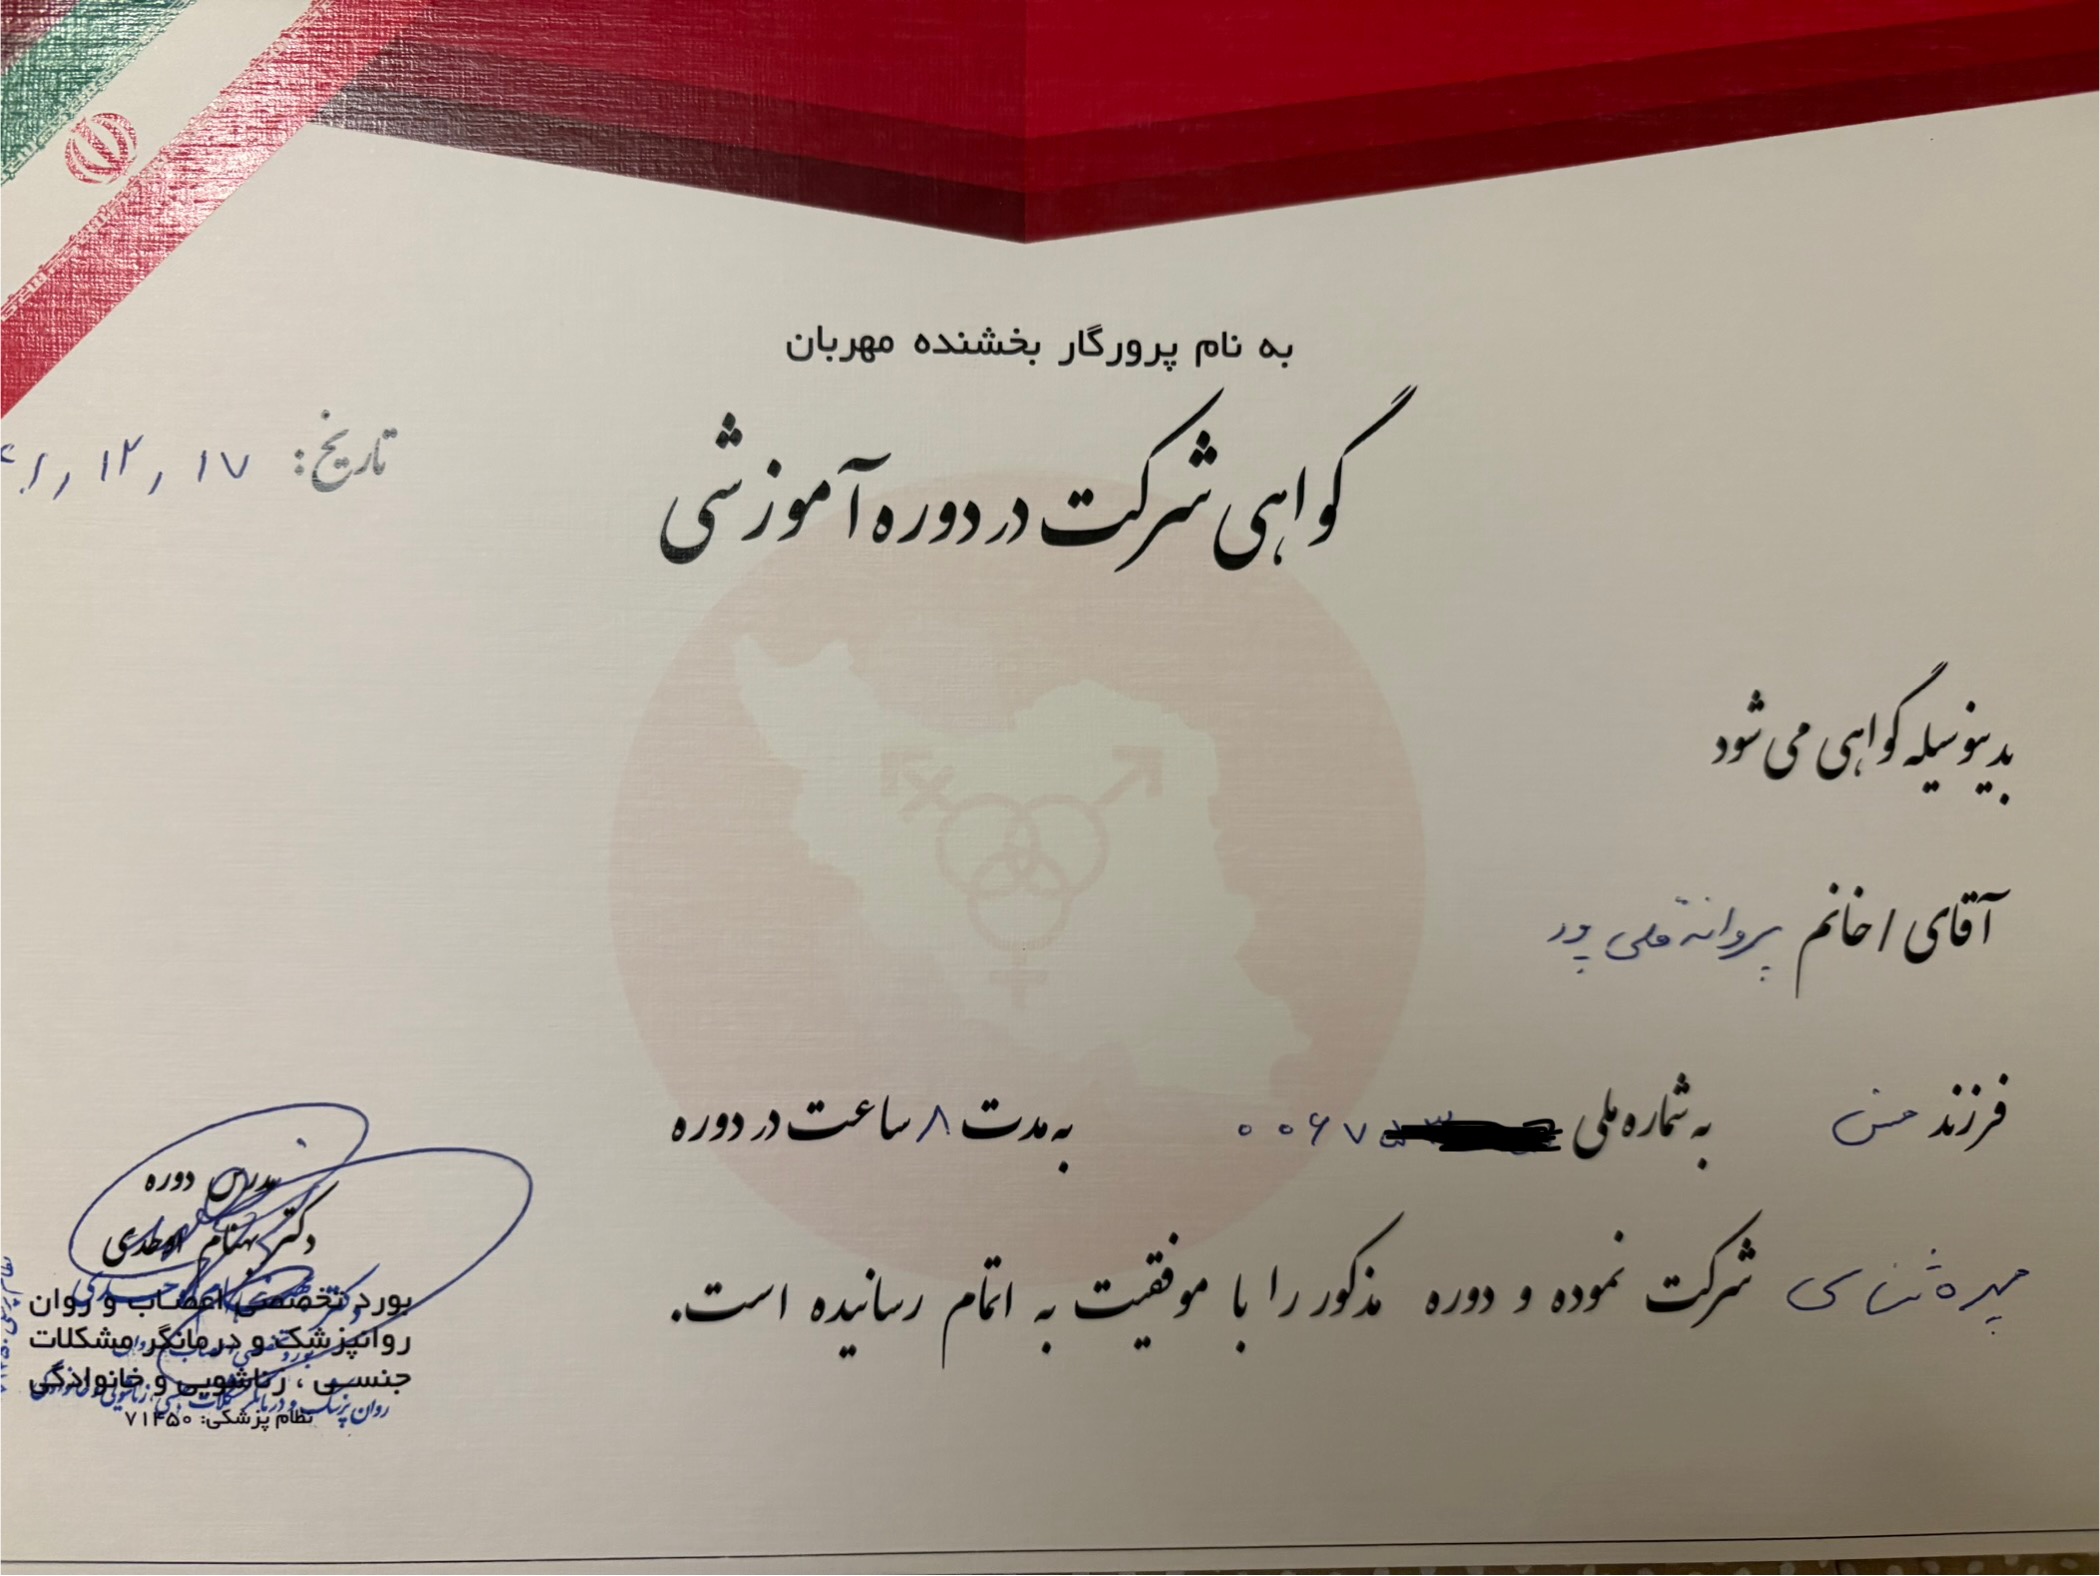 به نام پرورگار بخشنده مهربان
گواهی شرکت در دوره آموزشی
تاریخ: ۱۷ , ۱۲ ,
بدینوسیله گواهی می شود
آقای / خانم پروانه قلی پور
فرزند حسن به شماره ملی ۰۰۶۷ به مدت ۸ ساعت در دوره
چهره شناسی شرکت نموده و دوره مذکور را با موفقیت به اتمام رسانیده است.
مدرس دوره
دکتر بهنام اوحدی
بورد تخصصی اعصاب و روان
روانپزشک و درمانگر مشکلات
جنسی ، زناشویی و خانوادگی
نظام پزشکی: ۷۱۴۵۰